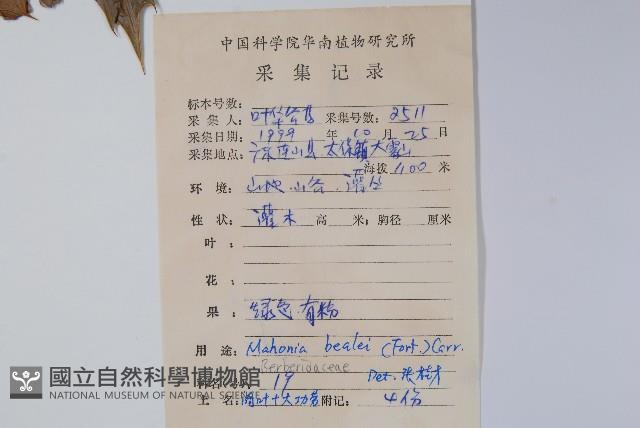 中国科学院华南植物研究所
采集记录
标本号数：
采集人：叶华谷 采集号数：2511
采集日期：1999年10月25日
采集地点：连山县 太保镇大雾山
海拔1100米
环境：山地.山谷.灌丛
性状：灌木 高 米；胸径 厘米
叶：
花：
果：绿色.有粉
用途：Mahonia bealei (Fort.) Carr.
Berberidaceae
19 Det. 张桂才
土名：阔叶十大功劳 附记：4份
國立自然科學博物館
NATIONAL MUSEUM OF NATURAL SCIENCE